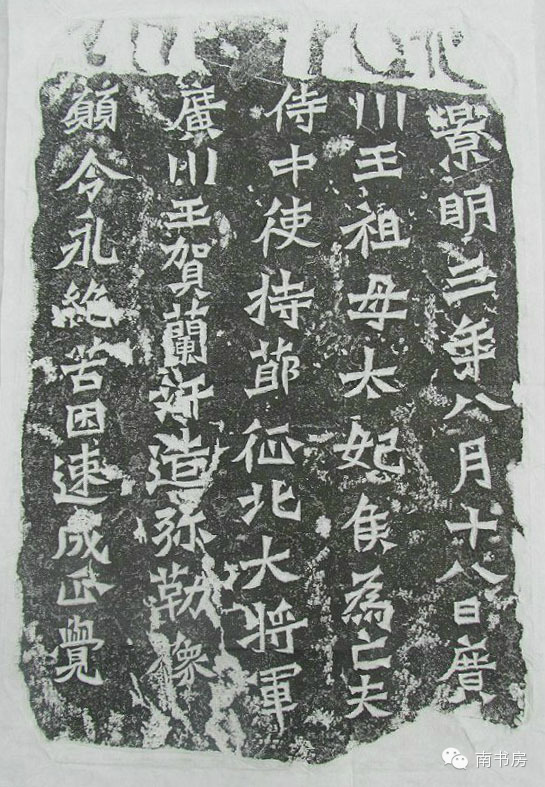 景明三年八月十八日廣
川王祖母太妃侯為亡夫
侍中使持節征北大將軍
廣川王賀蘭汗造弥勒像
願令永絕苦因速成正覺
南书房